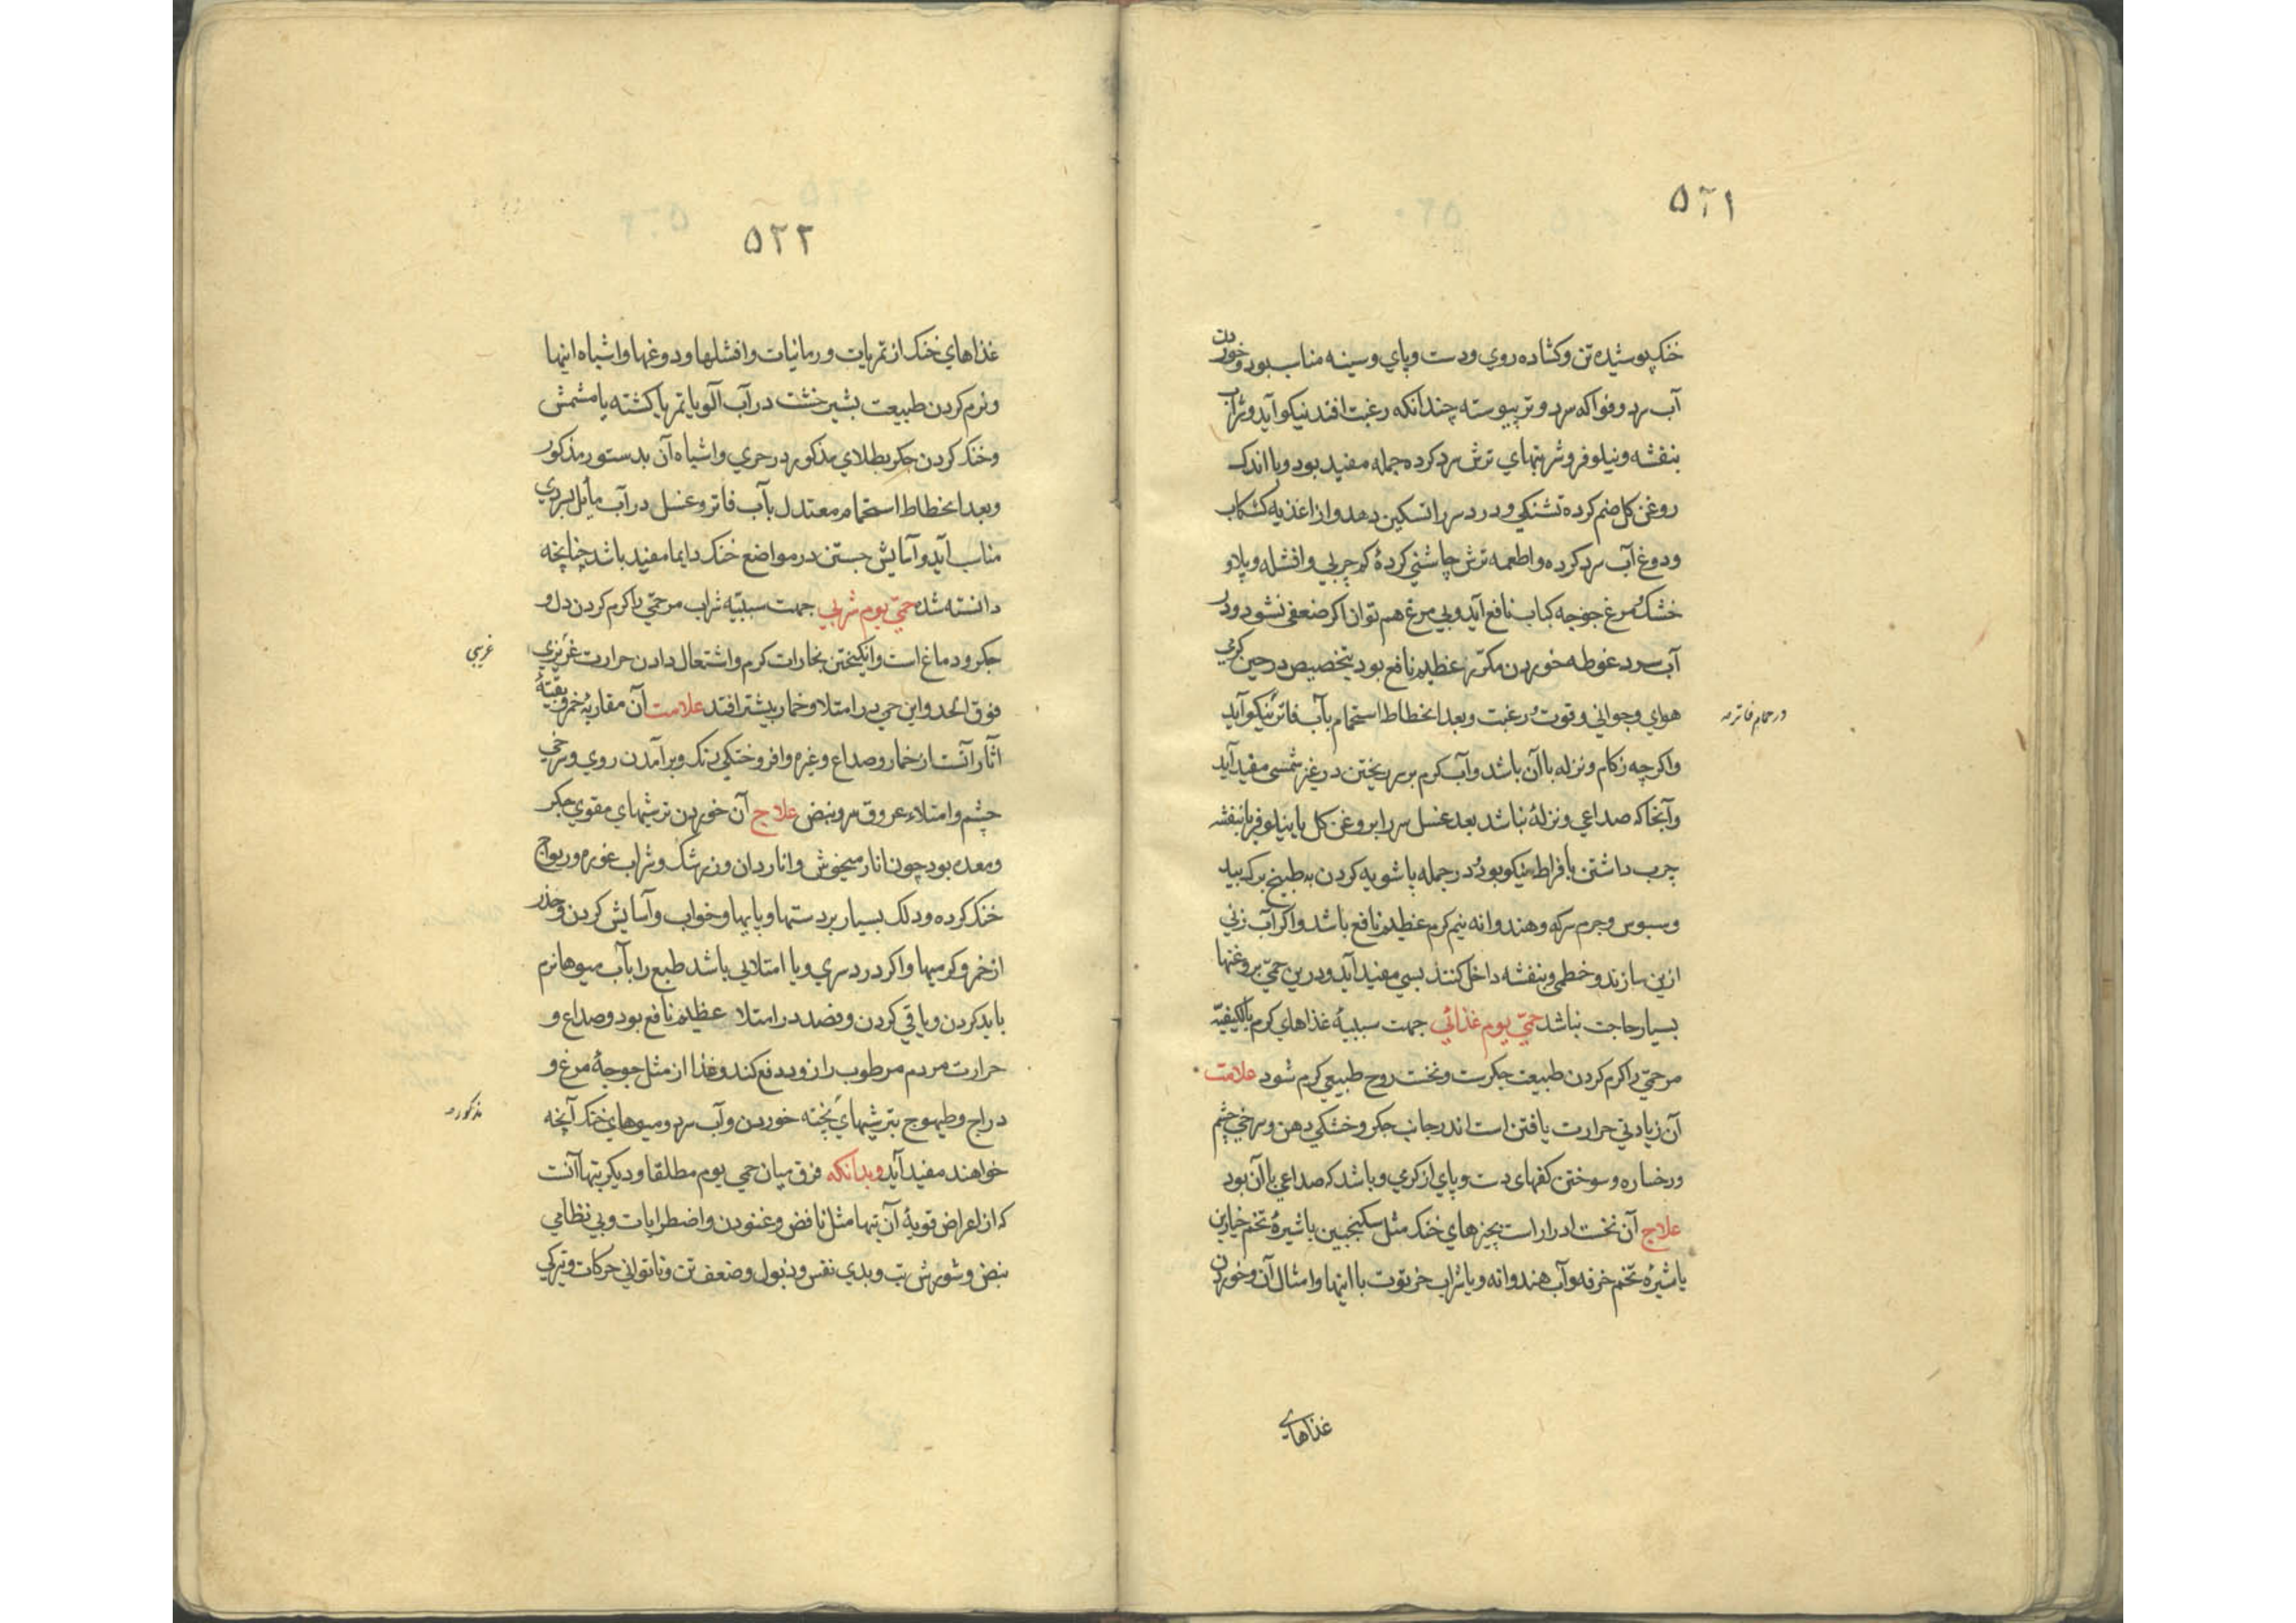 ۵۲۱
خنک پوشیده تن و کشاده روي و دست و پاي و سینه مناسب بود و خوردن
آب سرد و فواکه سرد و تر پیوسته چندانکه رغبت افتد نیکو آید و شراب
بنفشه و نیلوفر و شربتهاي ترش سرد کرده جمله مفید بود و با اندک
روغن کل ضم کرده تشنکي و درد سر را تسکین دهد و از اغذیه کشکاب
و دوغ آب سرد کرده و اطعمه ترش چاشني کردهٔ کم چربي و افشله و پلاو
خشک و مرغ جوجه کباب نافع آید و بي مرغ هم توان اکر ضعفی نشود و در
آب سرد غوطه خوردن مکرّر عظیم نافع بود بتخصیص در حین کرمي
هواي و جواني و قوت و رغبت و بعد انحطاط استحمام بآب فاتر نیکو آید
در حمام فاتر صه
و اکرچه زکام و نزله با آن باشد و آب کرم بر سر ریختن در غیر شمسی مفید آید
و آنجا که صداعي و نزلهٔ نباشد بعد غسل سر را بروغن کل یا نیلوفر یا بنفشه
چرب داشتن بافراط نیکو بود و در جمله پاشویه کردن به طبیخ برک بید
و سبوس و جرم سرکه و هندوانه نیم کرم عظیم نافع باشد و اکر آب زني
ازین سازند و خطمی و بنفشه داخل کنند بسي مفید آید و درین حمّي بروغنها
بسیار حاجت نباشد حمّي یوم غذائي جهت سببیهٔ غذاهاي کرم بالکیفیّه
مر حمّي را کرم کردن طبیعت جکرست و نخست روح طبیعي کرم شود علامت
آن زیادتي حرارت یافتن است اندر جانب جکر و خشکي دهن و سرخي چشم
و رخساره و سوختن کفهای دست و پاي از کرمي و باشد که صداعي با آن بود
علاج آن نخست ادرارست بچیزهاي خنک مثل سکنجبین با شیرهٔ تخم خیارین
یا شیرهٔ تخم خرفه و آب هندوانه و یا شراب خرتوت با اینها و امثال آن و خوردن
غذاهاے
۵۲۲
غذاهاي خنک از تمریات و رمانیات و افشلها و دوغها و اشباه اینها
و نرم کردن طبیعت بشیر خشت در آب آلو یا تمر یا کشته یا مشمش
و خنک کردن جکر بطلاي مذکور در حري و اشباه آن بدستور مذکور
و بعد انحطاط استحمام معتدل بآب فاتر و غسل در آب مایل ببردي
مناسب آید و آسایش جستن در مواضع خنک دایما مفید باشد چنانچه
دانسته شد حمّي یوم شربي جهت سببیّه شراب مر حمّي را کرم کردن دل و
جکر و دماغ است و انکیختن بخارات کرم و اشتعال دادن حرارت غریزي
غریبي
فوق الحد و این حمي در امتلا و خمار بیشتر افتد علامت آن مقاربهٔ خمر و بقیّهٔ
آثار آنست از خمار و صداع و غیره و افروختکي رنک و برآمدن روي و سرخي
چشم و امتلاء عروق سر و نبض علاج آن خوردن ترشیهاي مقوي جکر
و معده بود چون انار میخوش و اناردان و زرشک و شراب غوره و ریواج
خنک کرده و دلک بسیار بر دستها و پایها و خواب و آسایش کردن و حذر
از خمر و کرمیها و اکر درد سري و یا امتلایي باشد طبع را بآب میوها نرم
باید کردن و یا قي کردن و فصد در امتلا عظیم نافع بود و صداع و
حرارت مردم مرطوب را زود دفع کند و غذا از مثل جوجهٔ مرغ و
دراج و طیهوج بترشیهاي پخته خوردن و آب سرد و میوهاي خنک آنچه
مذکور صه
خواهند مفید آید و بدانکه فرق میان حمي یوم مطلقا و دیکر تبها آنست
که از اعراض قویهٔ آن تبها مثل نافض و غنودن و اضطرابات و بي نظامي
نبض و شورش تب و بدي نفس و ذبول و ضعف تن و ناتواني حرکات و تیرکي